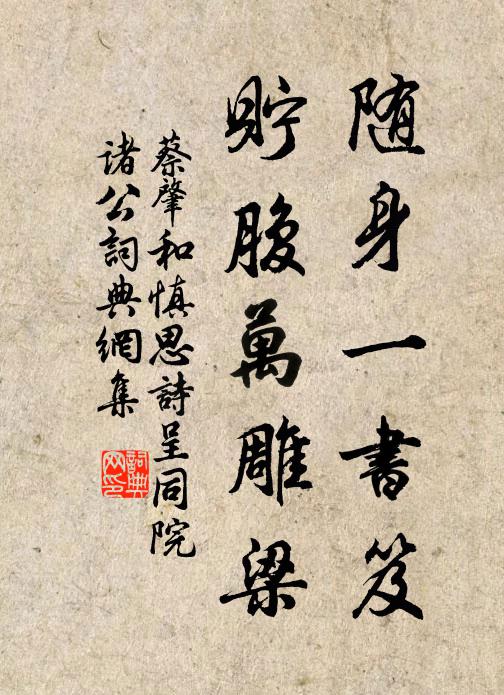 随身一書笈
貯腹萬雕梁
蔡肇和慎思詩呈同院
諸公詞典網集
詞典网印